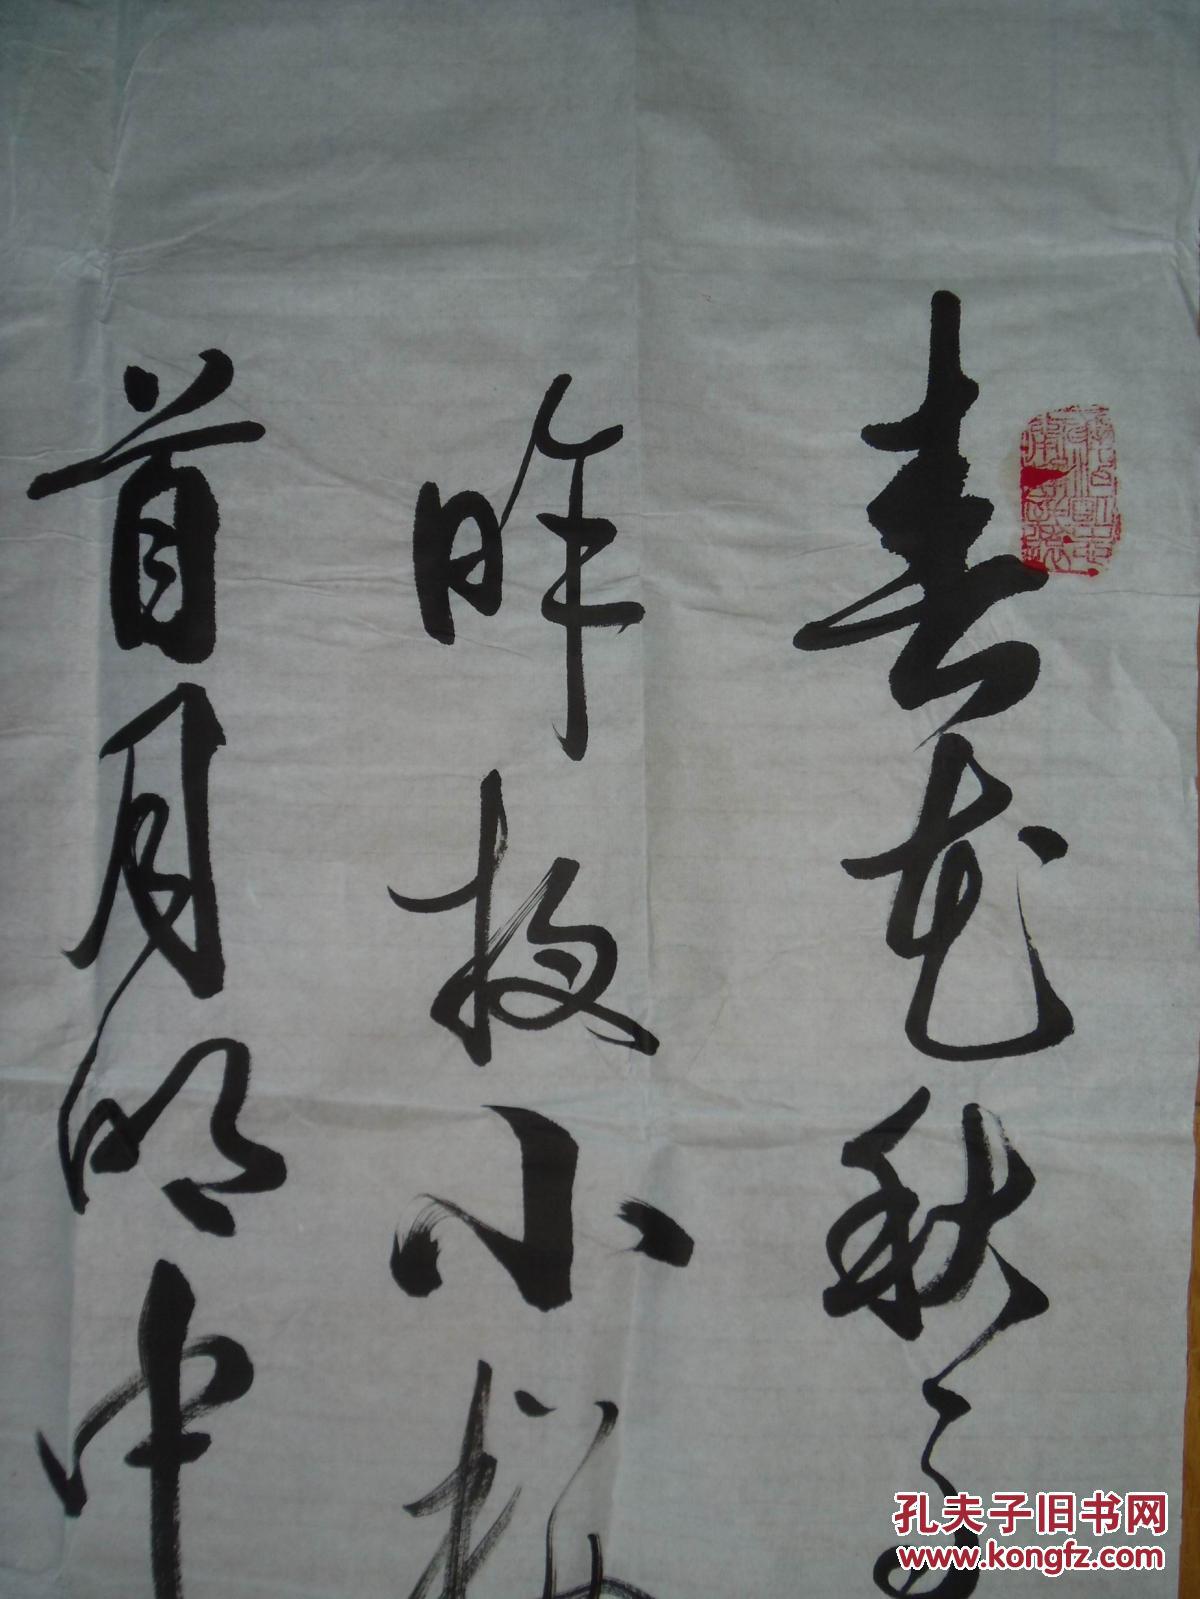 春花秋月
昨夜小楼
首月明中
孔夫子旧书网
www.kongfz.com